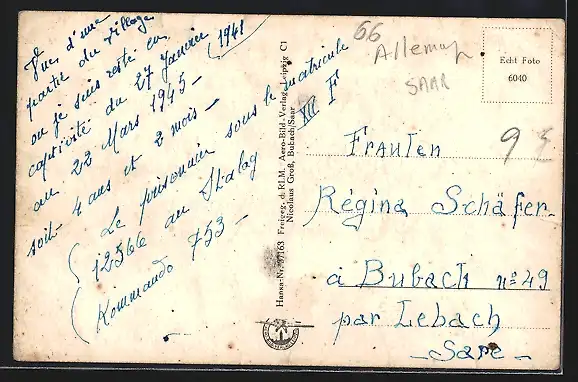 Vue d'une
partie du village
ou je suis resté en
captivité du 27 Janvier 1941
au 22 Mars 1945 -
soit - 4 ans et 2 mois -
( Le prisonnier sous le matricule
12566 au Stalag XII F
( Kommando 753 -
Hansa-Nr. 3/163 Freigeg. d. RLM. Aero-Bild-Verlag Leipzig C1
Nicolaus Groß, Bubach/Saar
66
Allemag
SAAR
Echt Foto
6040
Fraulen
Régina Schäfer-
à Bubach n:o 49
par Lebach
- Sare -